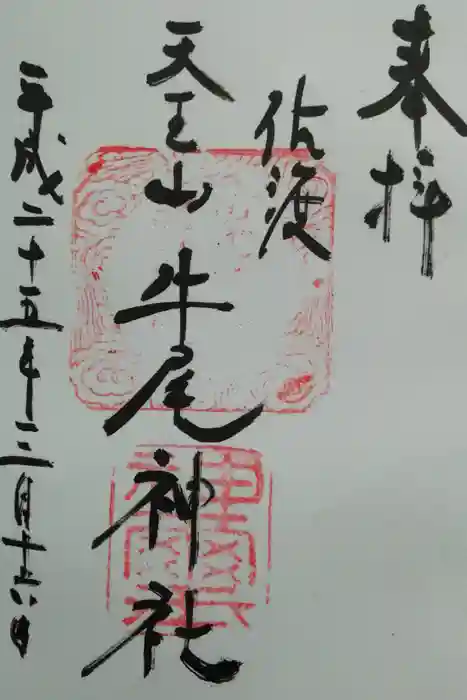 奉拝
佐渡
天王山
牛尾神社
平成二十五年三月十六日